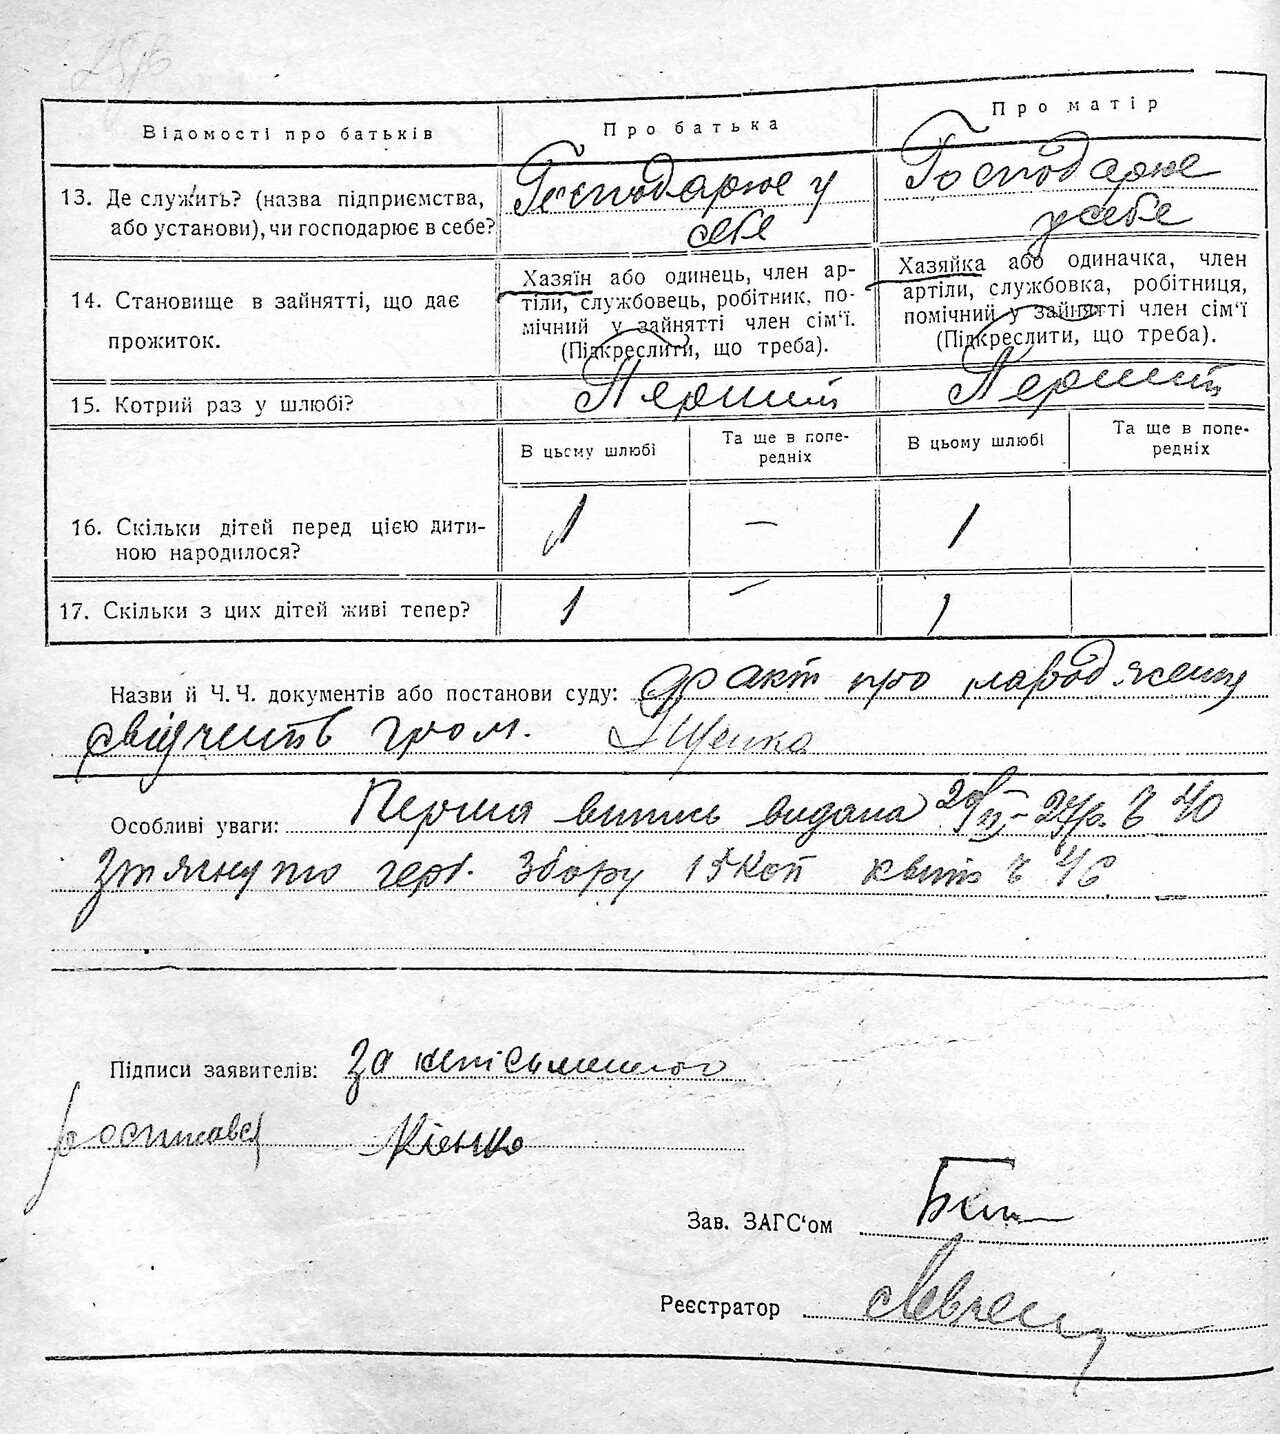 Відомості про батьків
Про батька
Про матір
13. Де служить? (назва підприємства,
або установи), чи господарює в себе?
Господарює у
себе
Господарює
у себе
14. Становище в зайнятті, що дає
прожиток.
Хазяїн або одинець, член ар-
тіли, службовець, робітник, по-
мічний у зайнятті член сім'ї.
(Підкреслити, що треба).
Хазяйка або одиначка, член
артіли, службовка, робітниця,
помічний у зайнятті член сім'ї
(Підкреслити, що треба).
15. Котрий раз у шлюбі?
Перший
Перший
В цьому шлюбі
Та ще в попе-
редніх
В цьому шлюбі
Та ще в попе-
редніх
16. Скільки дітей перед цією дити-
ною народилося?
1
—
1
17. Скільки з цих дітей живі тепер?
1
—
1
Назви й Ч.Ч. документів або постанови суду: факт про народження
свідчить гром. Іщенко
Особливі уваги: Перша випись видана 29/ІІ-27р. Ч 40
Зтягнуто герб. збору 15 коп квит Ч 46
Підписи заявителів: За неписьменного
росписався
Зав. ЗАГС'ом
Реєстратор